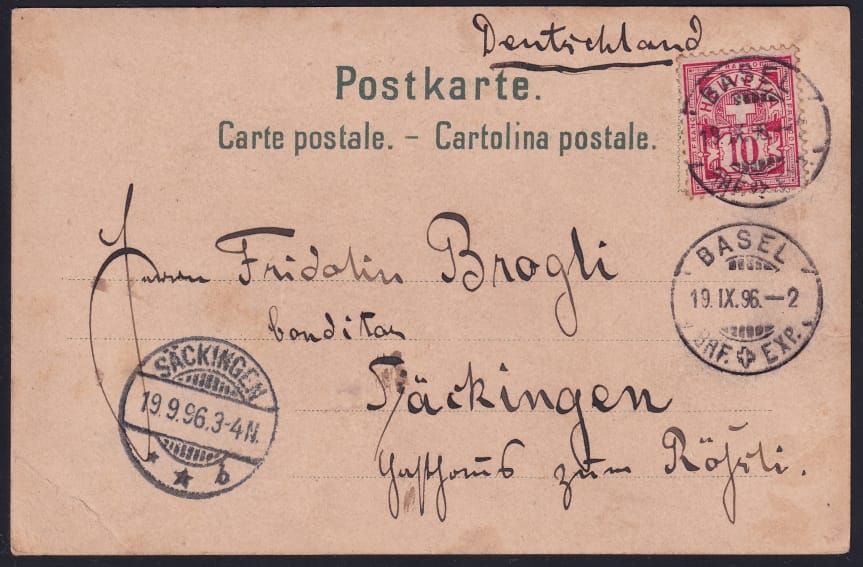 Deutschland
Postkarte.
Carte postale. – Cartolina postale.
HELVETIA
10
BASEL
19. IX. 96.–2
BHF. EXP.
Herrn Fridolin Brogli
Conditor
Säckingen
Gasthaus zum Rößli.
SÄCKINGEN
19.9.96.3-4N.
* * b